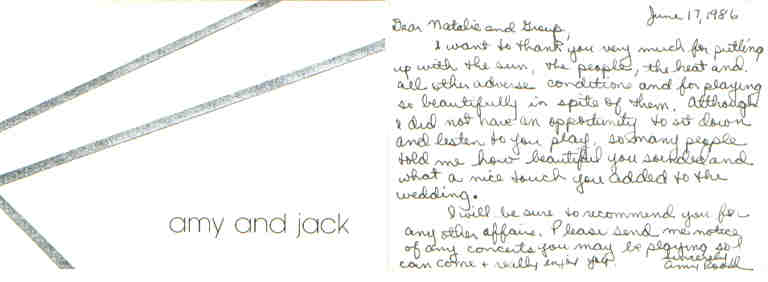 amy and jack
June 17, 1986
Dear Natalie and Group,
I want to thank you very much for putting
up with the sun, the people, the heat and
all other adverse condition and for playing
so beautifully in spite of them. Although
I did not have an opportunity to sit down
and listen to you play, so many people
told me how beautiful you sounded and
what a nice touch you added to the
wedding.
I will be sure to recommend you for
any other affairs. Please send me notice
of any concerts you may be playing so I
can come + really enjoy you.
Sincerely
Amy